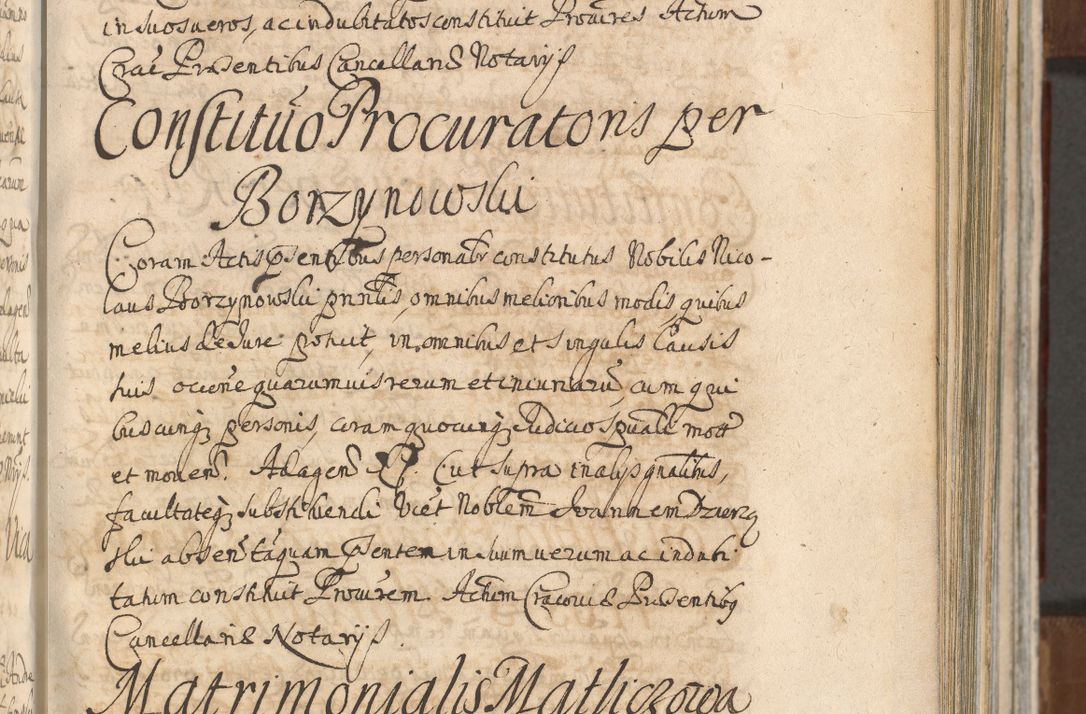 in suos ueros, ac indubitatos constituit Procures Actum
Crac Praesentibus Cancellariae Notarijs
Constitutio Procuratoris per
Borzynowski
Coram Actis psentibus personalr constitutus Nobilis Nico-
laus Borzynowski pnntis, omnibus melioribus modis, quibus
melius de Jure potuit, in omnibus et singulis Causis
suis occone quarumuis rerum et iniuriarū, cum qui
buscunq personis, coram quocunq Judicio spuali mott
et mouen. Ad agen &c Cut supra in alijs gnalibus,
facultateq substituendi Vict Noblem Joannem Dzierz
ski absen tāquam psentem in suum uerum ac indubi
tatum constituit Procurem. Actum Cracouiae Praesentibq
Cancellariae Notarijs
Matrimonialis Mathiczowa